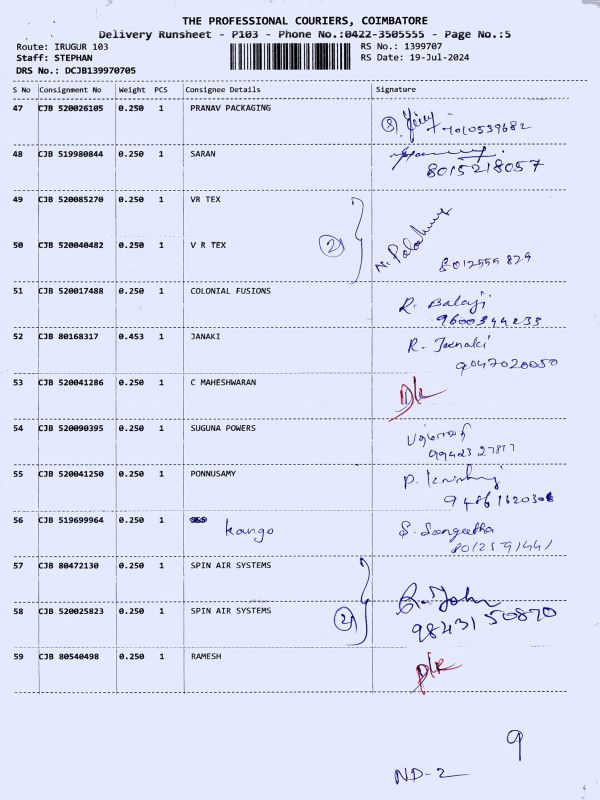 THE PROFESSIONAL COURIERS, COIMBATORE
Delivery Runsheet - P103 - Phone No.:0422-3505555 - Page No.:5
Route: IRUGUR 103 RS No.: 1399707
Staff: STEPHAN RS Date: 19-Jul-2024
DRS No.: DCJB139970705
S No Consignment No Weight PCS Consignee Details Signature
47 CJB 520026105 0.250 1 PRANAV PACKAGING
7010539682
48 CJB 519980844 0.250 1 SARAN
8015218057
49 CJB 520085270 0.250 1 VR TEX
50 CJB 520040482 0.250 1 V R TEX
2
8012555 829
51 CJB 520017488 0.250 1 COLONIAL FUSIONS R. Balaji
9600344235
52 CJB 80168317 0.453 1 JANAKI R. Janaki
9047020050
53 CJB 520041286 0.250 1 C MAHESHWARAN
54 CJB 520090395 0.250 1 SUGUNA POWERS
55 CJB 520041250 0.250 1 PONNUSAMY
56 CJB 519699964 0.250 1 kango S. Sangeetha
57 CJB 80472130 0.250 1 SPIN AIR SYSTEMS
58 CJB 520025823 0.250 1 SPIN AIR SYSTEMS 2 R. John
98431 50870
59 CJB 80540498 0.250 1 RAMESH
9
ND-2